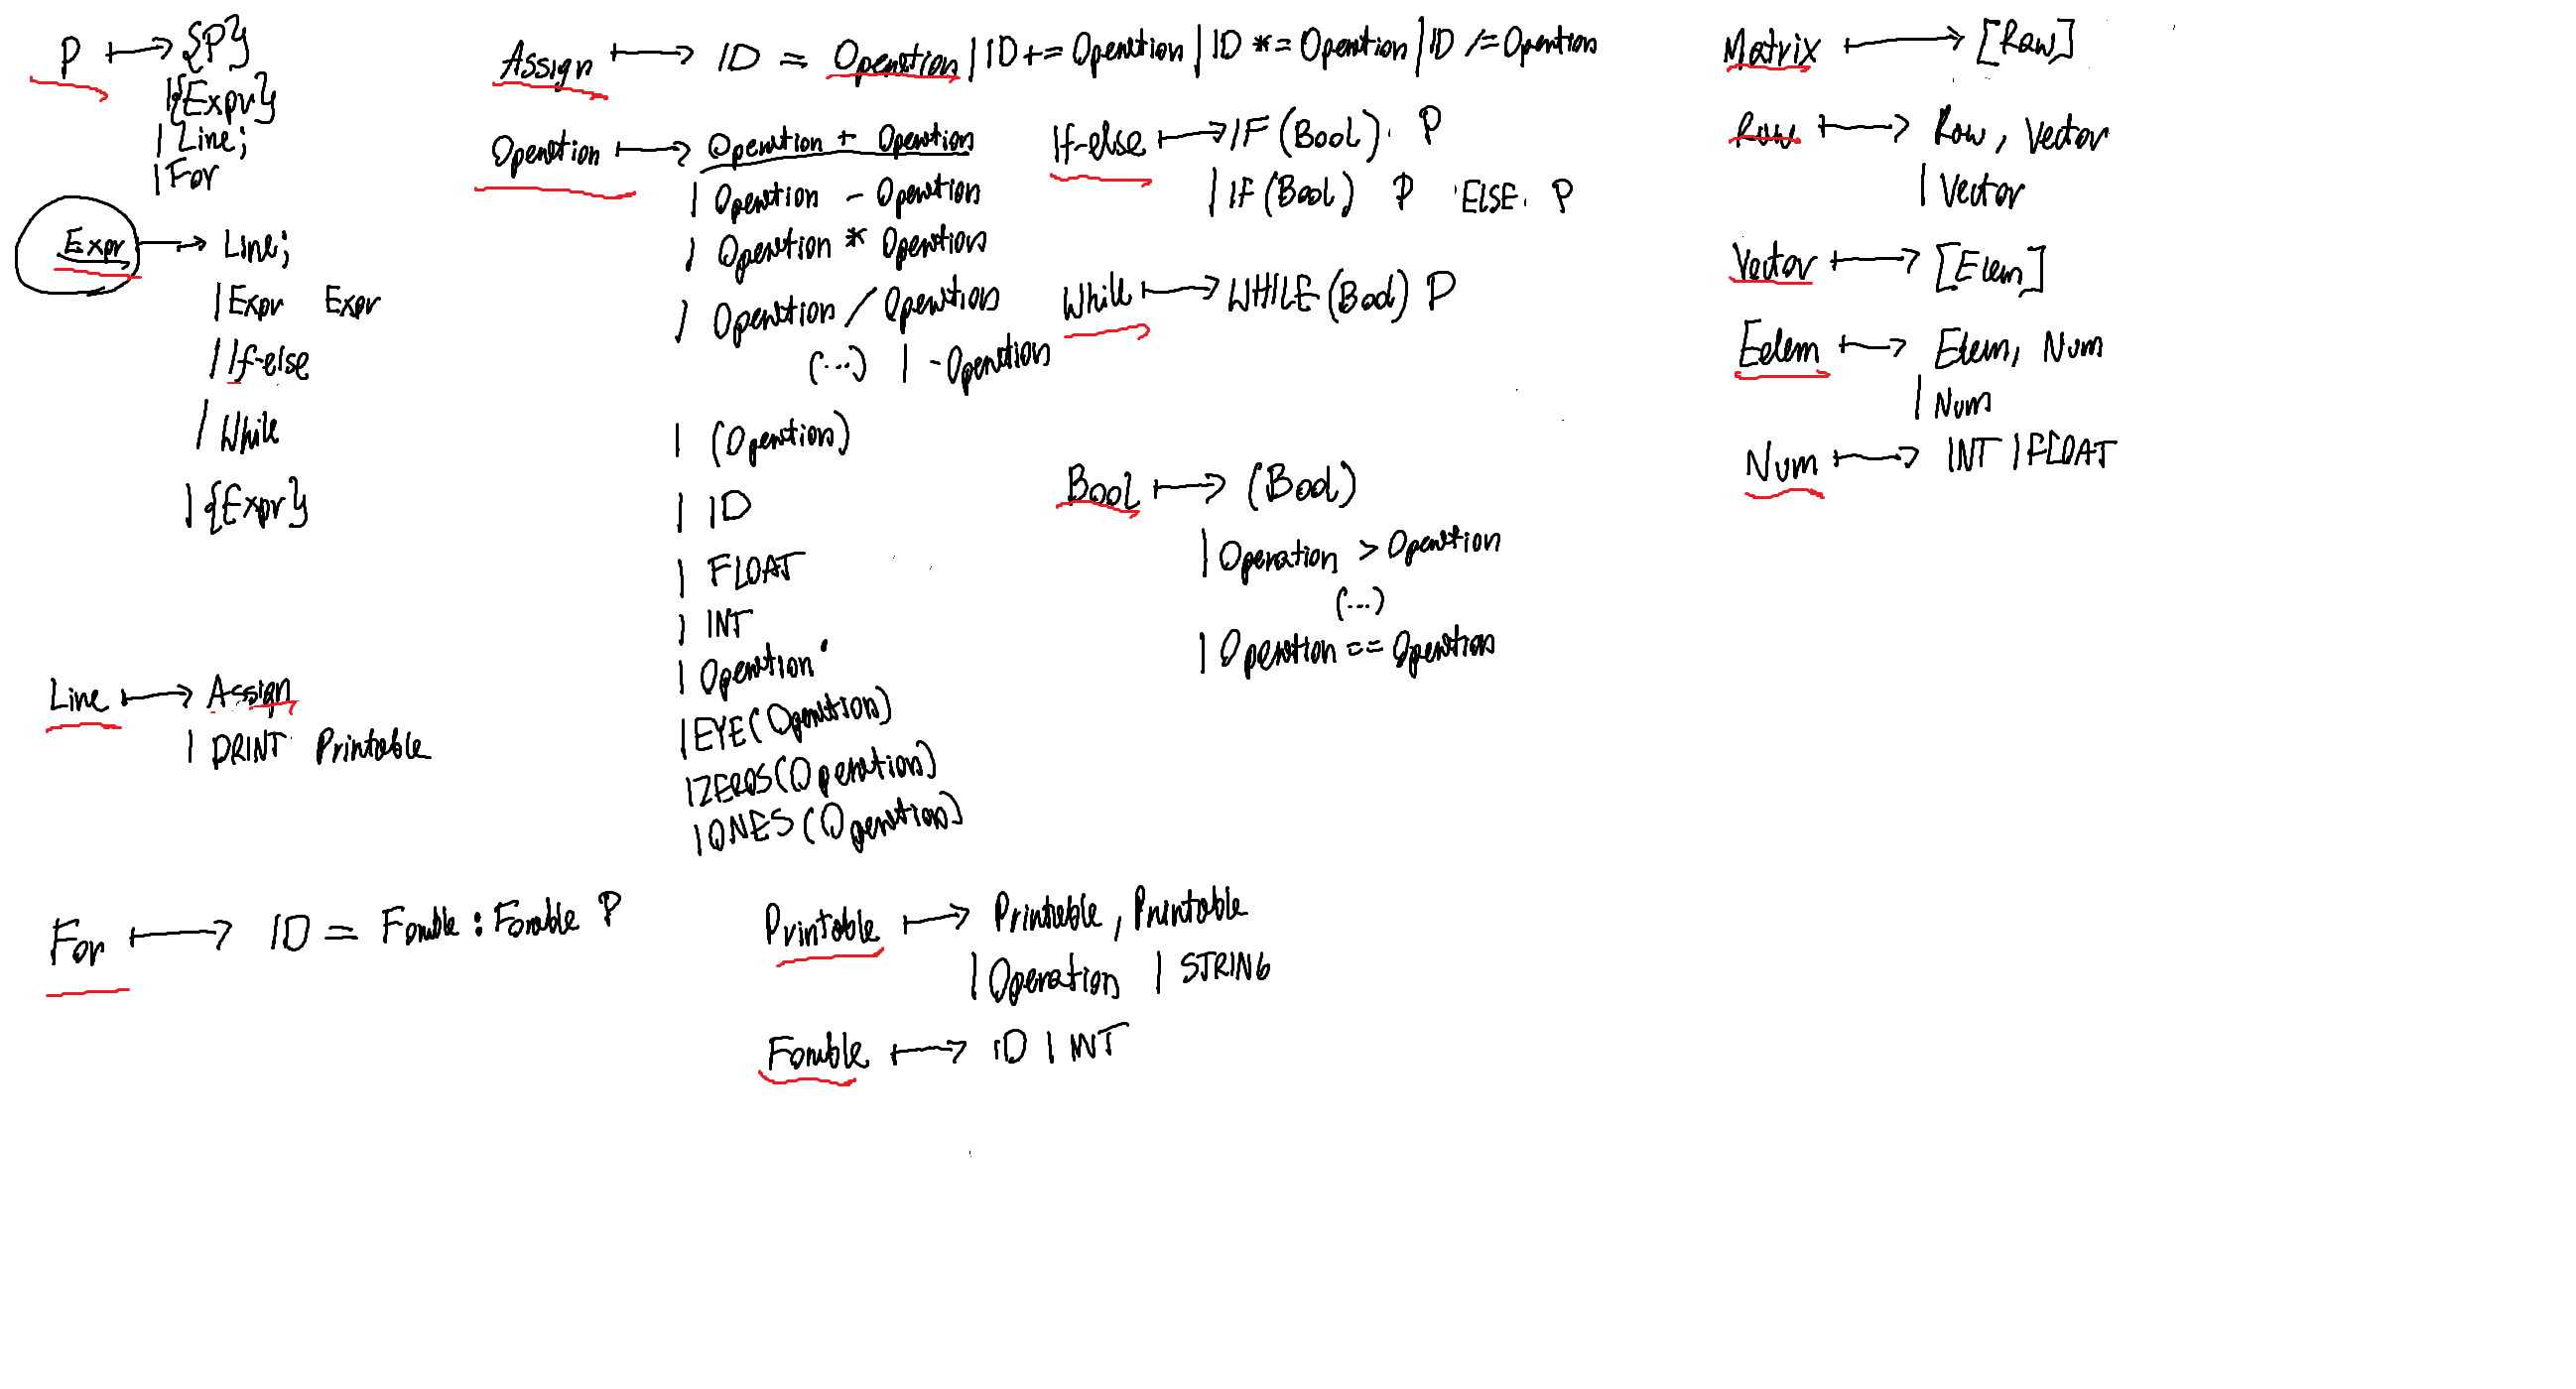 P ↦ {P}
| {Expr}
| Line;
| For
Expr ↦ Line;
| Expr Expr
| If-else
| While
| {Expr}
Line ↦ Assign
| PRINT Printable
For ↦ ID = Forable : Forable P
Assign ↦ ID = Operation | ID += Operation | ID *= Operation | ID /= Operation
Operation ↦ Operation + Operation
| Operation - Operation
| Operation * Operation
| Operation / Operation
(...) | -Operation
| (Operation)
| ID
| FLOAT
| INT
| Operation'
| EYE(Operation)
| ZEROS(Operation)
| ONES(Operation)
If-else ↦ IF (Bool) P
| IF (Bool) P ELSE P
While ↦ WHILE (Bool) P
Bool ↦ (Bool)
| Operation > Operation
(...)
| Operation == Operation
Printable ↦ Printable, Printable
| Operation | STRING
Forable ↦ ID | INT
Matrix ↦ [Row]
Row ↦ Row, Vector
| Vector
Vector ↦ [Elem]
Eelem ↦ Elem, Num
| Num
Num ↦ INT | FLOAT